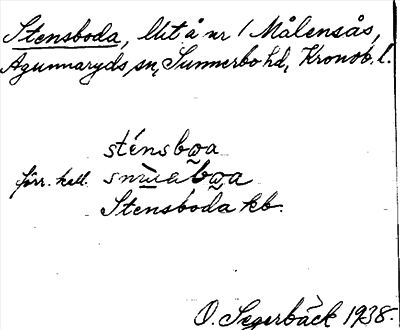 Stensboda, lht å nr 1 Målensås,
Agunnaryds sn, Sunnerbo hd, Kronob. l.
sténsbωa
förr. kall. snùabωa
Stensboda kb.
O. Segerbäck 1938.